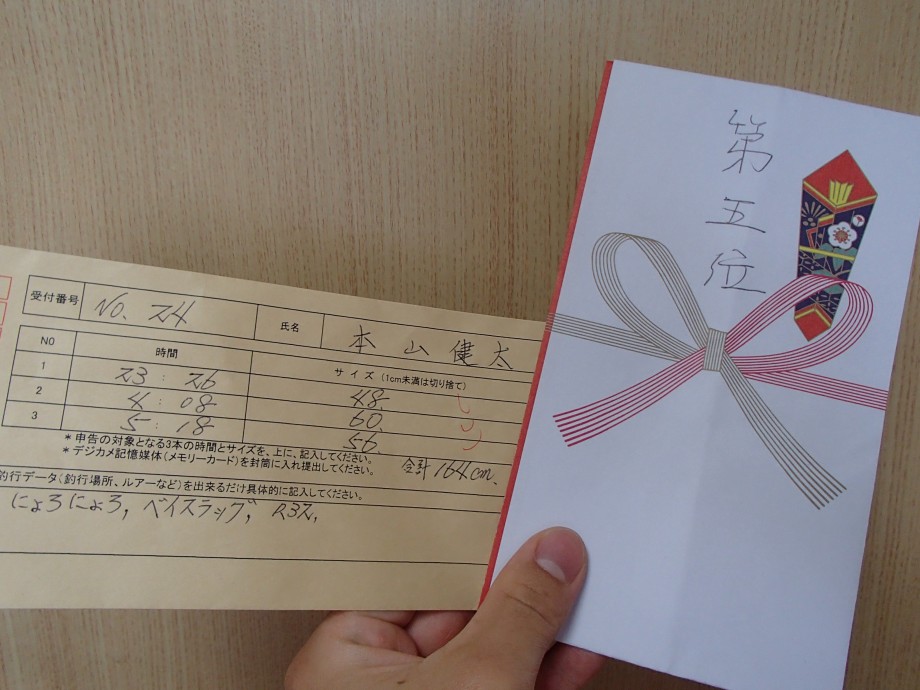 受付番号 No. 24 氏名 本山健太
NO 時間 サイズ (1cm未満は切り捨て)
1 23:26 48
2 4:08 60
3 5:18 56
*申告の対象となる3本の時間とサイズを、上に、記入してください。
*デジカメ記憶媒体(メモリーカード)を封筒に入れ提出してください。
合計 164cm.
釣行データ(釣行場所、ルアーなど)を出来るだけ具体的に記入してください。
にょろにょろ, ベイスラッグ, R32,
第五位